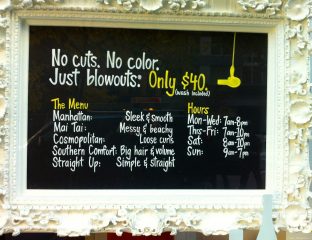 No cuts. No color.
Just blowouts: Only $40.
(wash included)
The Menu
Manhattan: Sleek & smooth
Mai Tai: Messy & beachy
Cosmopolitan: Loose curls
Southern Comfort: Big hair & volume
Straight Up: Simple & straight
Hours
Mon-Wed: 7am-8pm
Thus-Fri: 7am-10pm
Sat: 8am-10pm
Sun: 9am-7pm